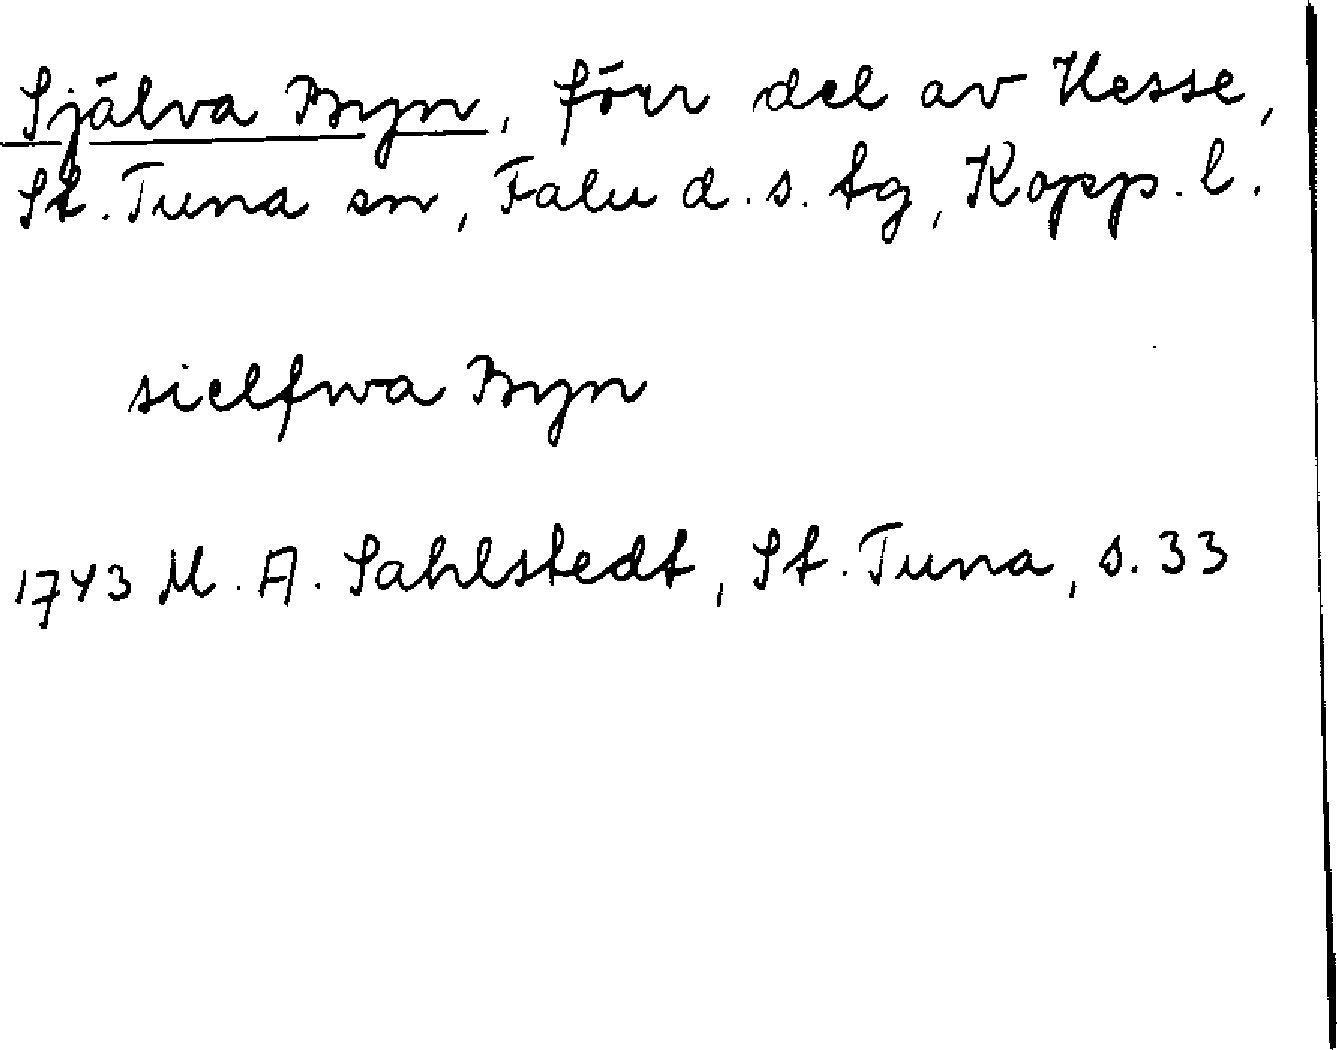 Själva Byn, förr del av Hesse,
St. Tuna sn, Falu d. s. tg, Kopp. l.
sielfwa Byn
1743 M. A. Sahlstedt, St. Tuna, s. 33